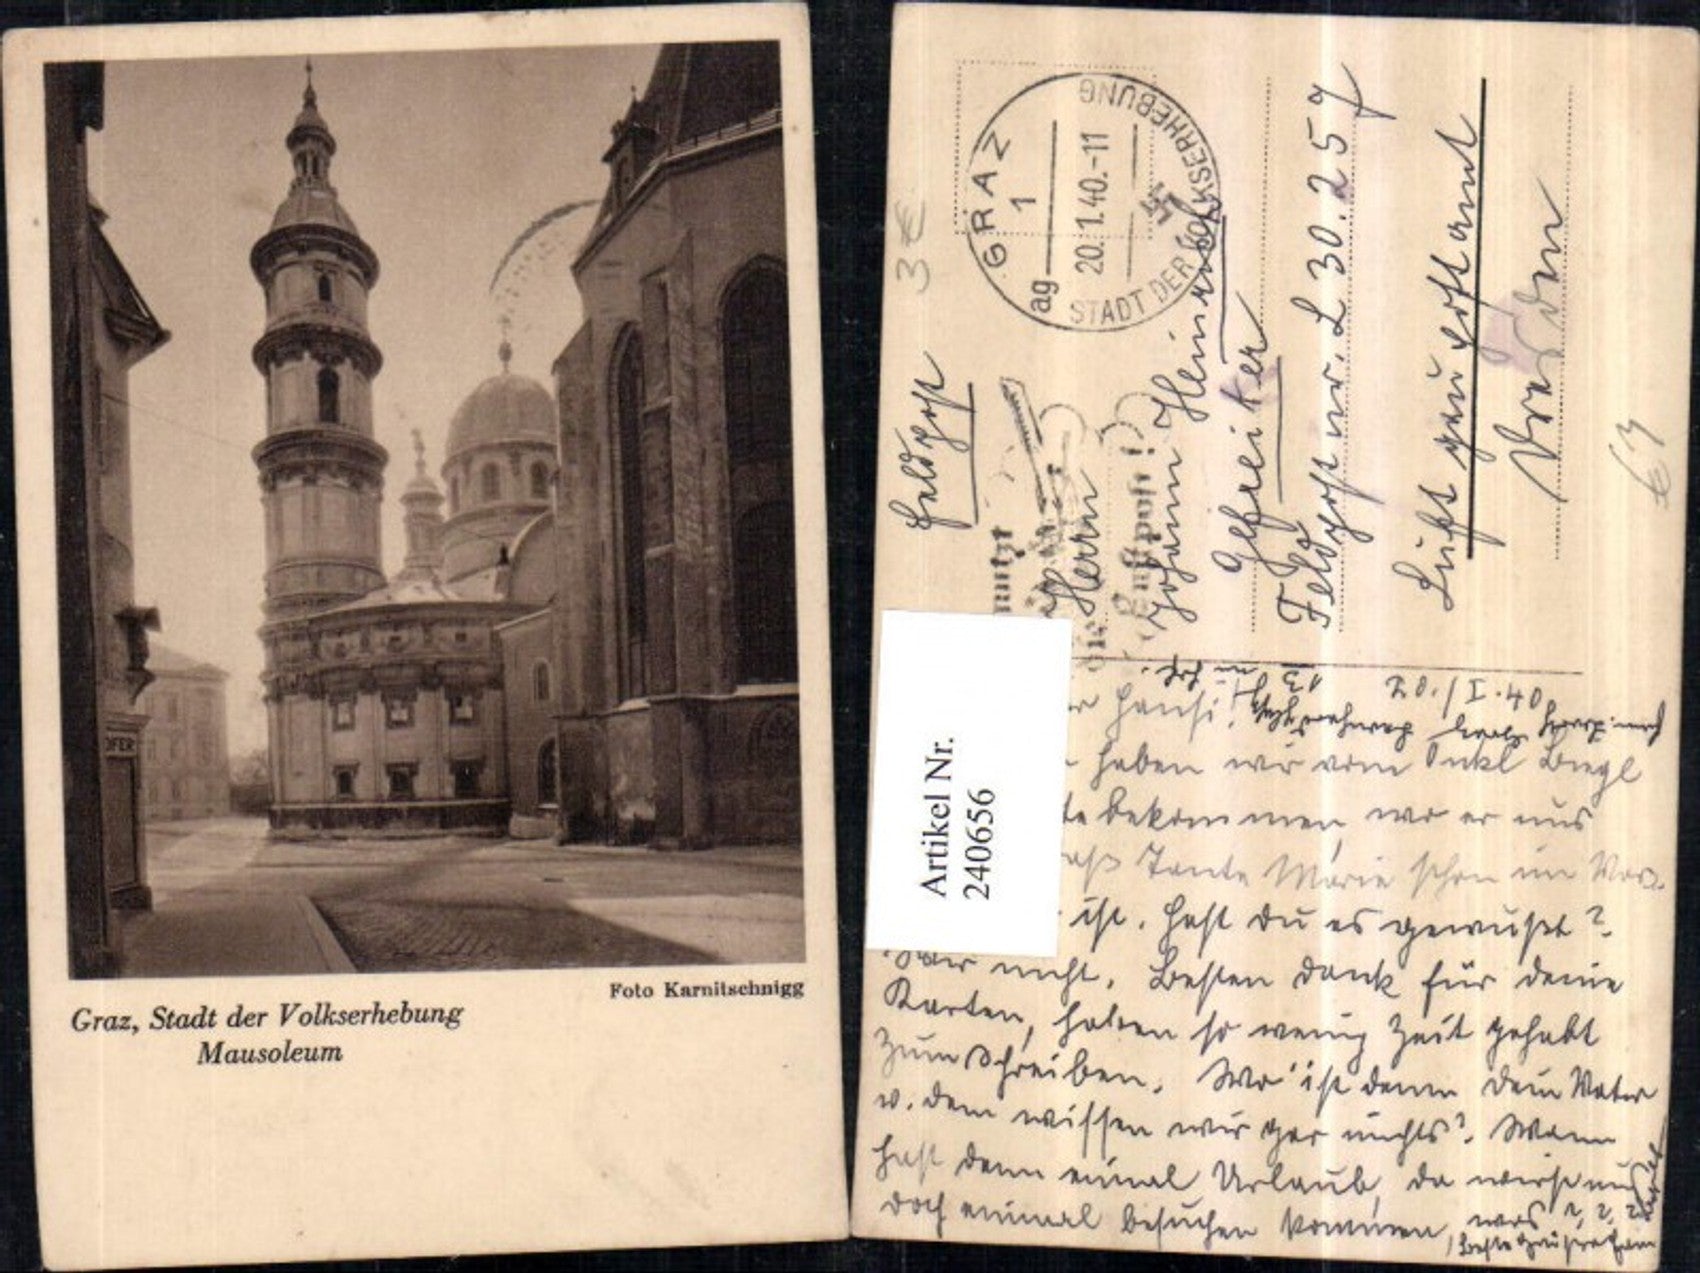 OFER
Foto Karnitschnigg
Graz, Stadt der Volkserhebung
Mausoleum
GRAZ
1
ag
20.1.40.-11
STADT DER VOLKSERHEBUNG
3€
Feldpost
Luftpost!
Herrn
Johann Heinrich
Gefreiter
Feldpost nr. L 30.257
Luftgaupostamt
Dresden
€3
Artikel Nr.
240656
Hansi!
haben wir vom Onkl
bekommen, wo er uns
Tante Marie schon im
ist. Hast Du es gewußt?
Wir nicht. Besten Dank für Deine
Karten, haben so wenig Zeit gehabt
zum Schreiben. Wo ist denn Dein Vater
v. dem wissen wir gar nichts? Wann
hast denn einmal Urlaub, da wirst uns
doch einmal besuchen kommen, was ? ? ?